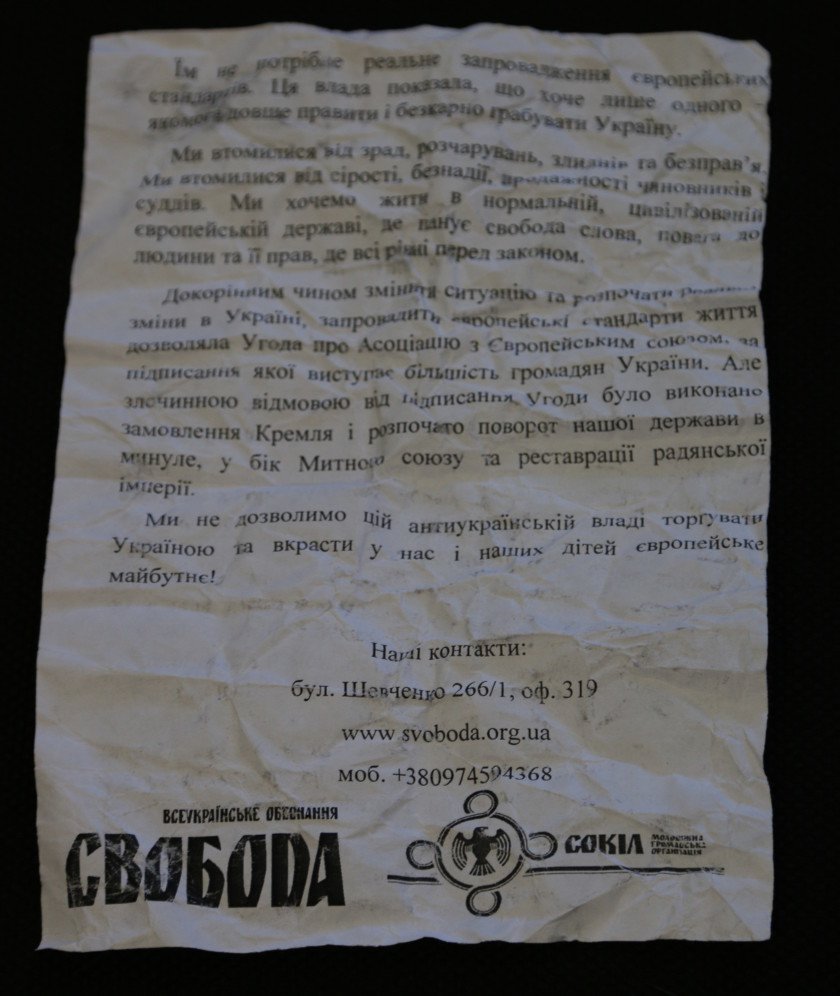 Їм не потрібне реальне запровадження європейських
стандартів. Ця влада показала, що хоче лише одного –
якомога довше правити і безкарно грабувати Україну.
Ми втомилися від зрад, розчарувань, злиднів та безправ’я.
Ми втомилися від сірості, безнадії, продажності чиновників і
суддів. Ми хочемо жити в нормальній, цивілізованій
європейській державі, де панує свобода слова, повага до
людини та її прав, де всі рівні перед законом.
Докорінним чином змінити ситуацію та розпочати реальні
зміни в Україні, запровадить європейські стандарти життя
дозволяла Угода про Асоціацію з Європейським союзом, за
підписання якої виступає більшість громадян України. Але
злочинною відмовою від підписання Угоди було виконано
замовлення Кремля і розпочато поворот нашої держави в
минуле, у бік Митного союзу та реставрації радянської
імперії.
Ми не дозволимо цій антиукраїнській владі торгувати
Україною та вкрасти у нас і наших дітей європейське
майбутнє!
Наші контакти:
бул. Шевченко 266/1, оф. 319
www.svoboda.org.ua
моб. +380974594368
ВСЕУКРАЇНСЬКЕ ОБ'ЄДНАННЯ
СВОБОДА
СОКІЛ
МОЛОДІЖНА
ГРОМАДСЬКА
ОРГАНІЗАЦІЯ